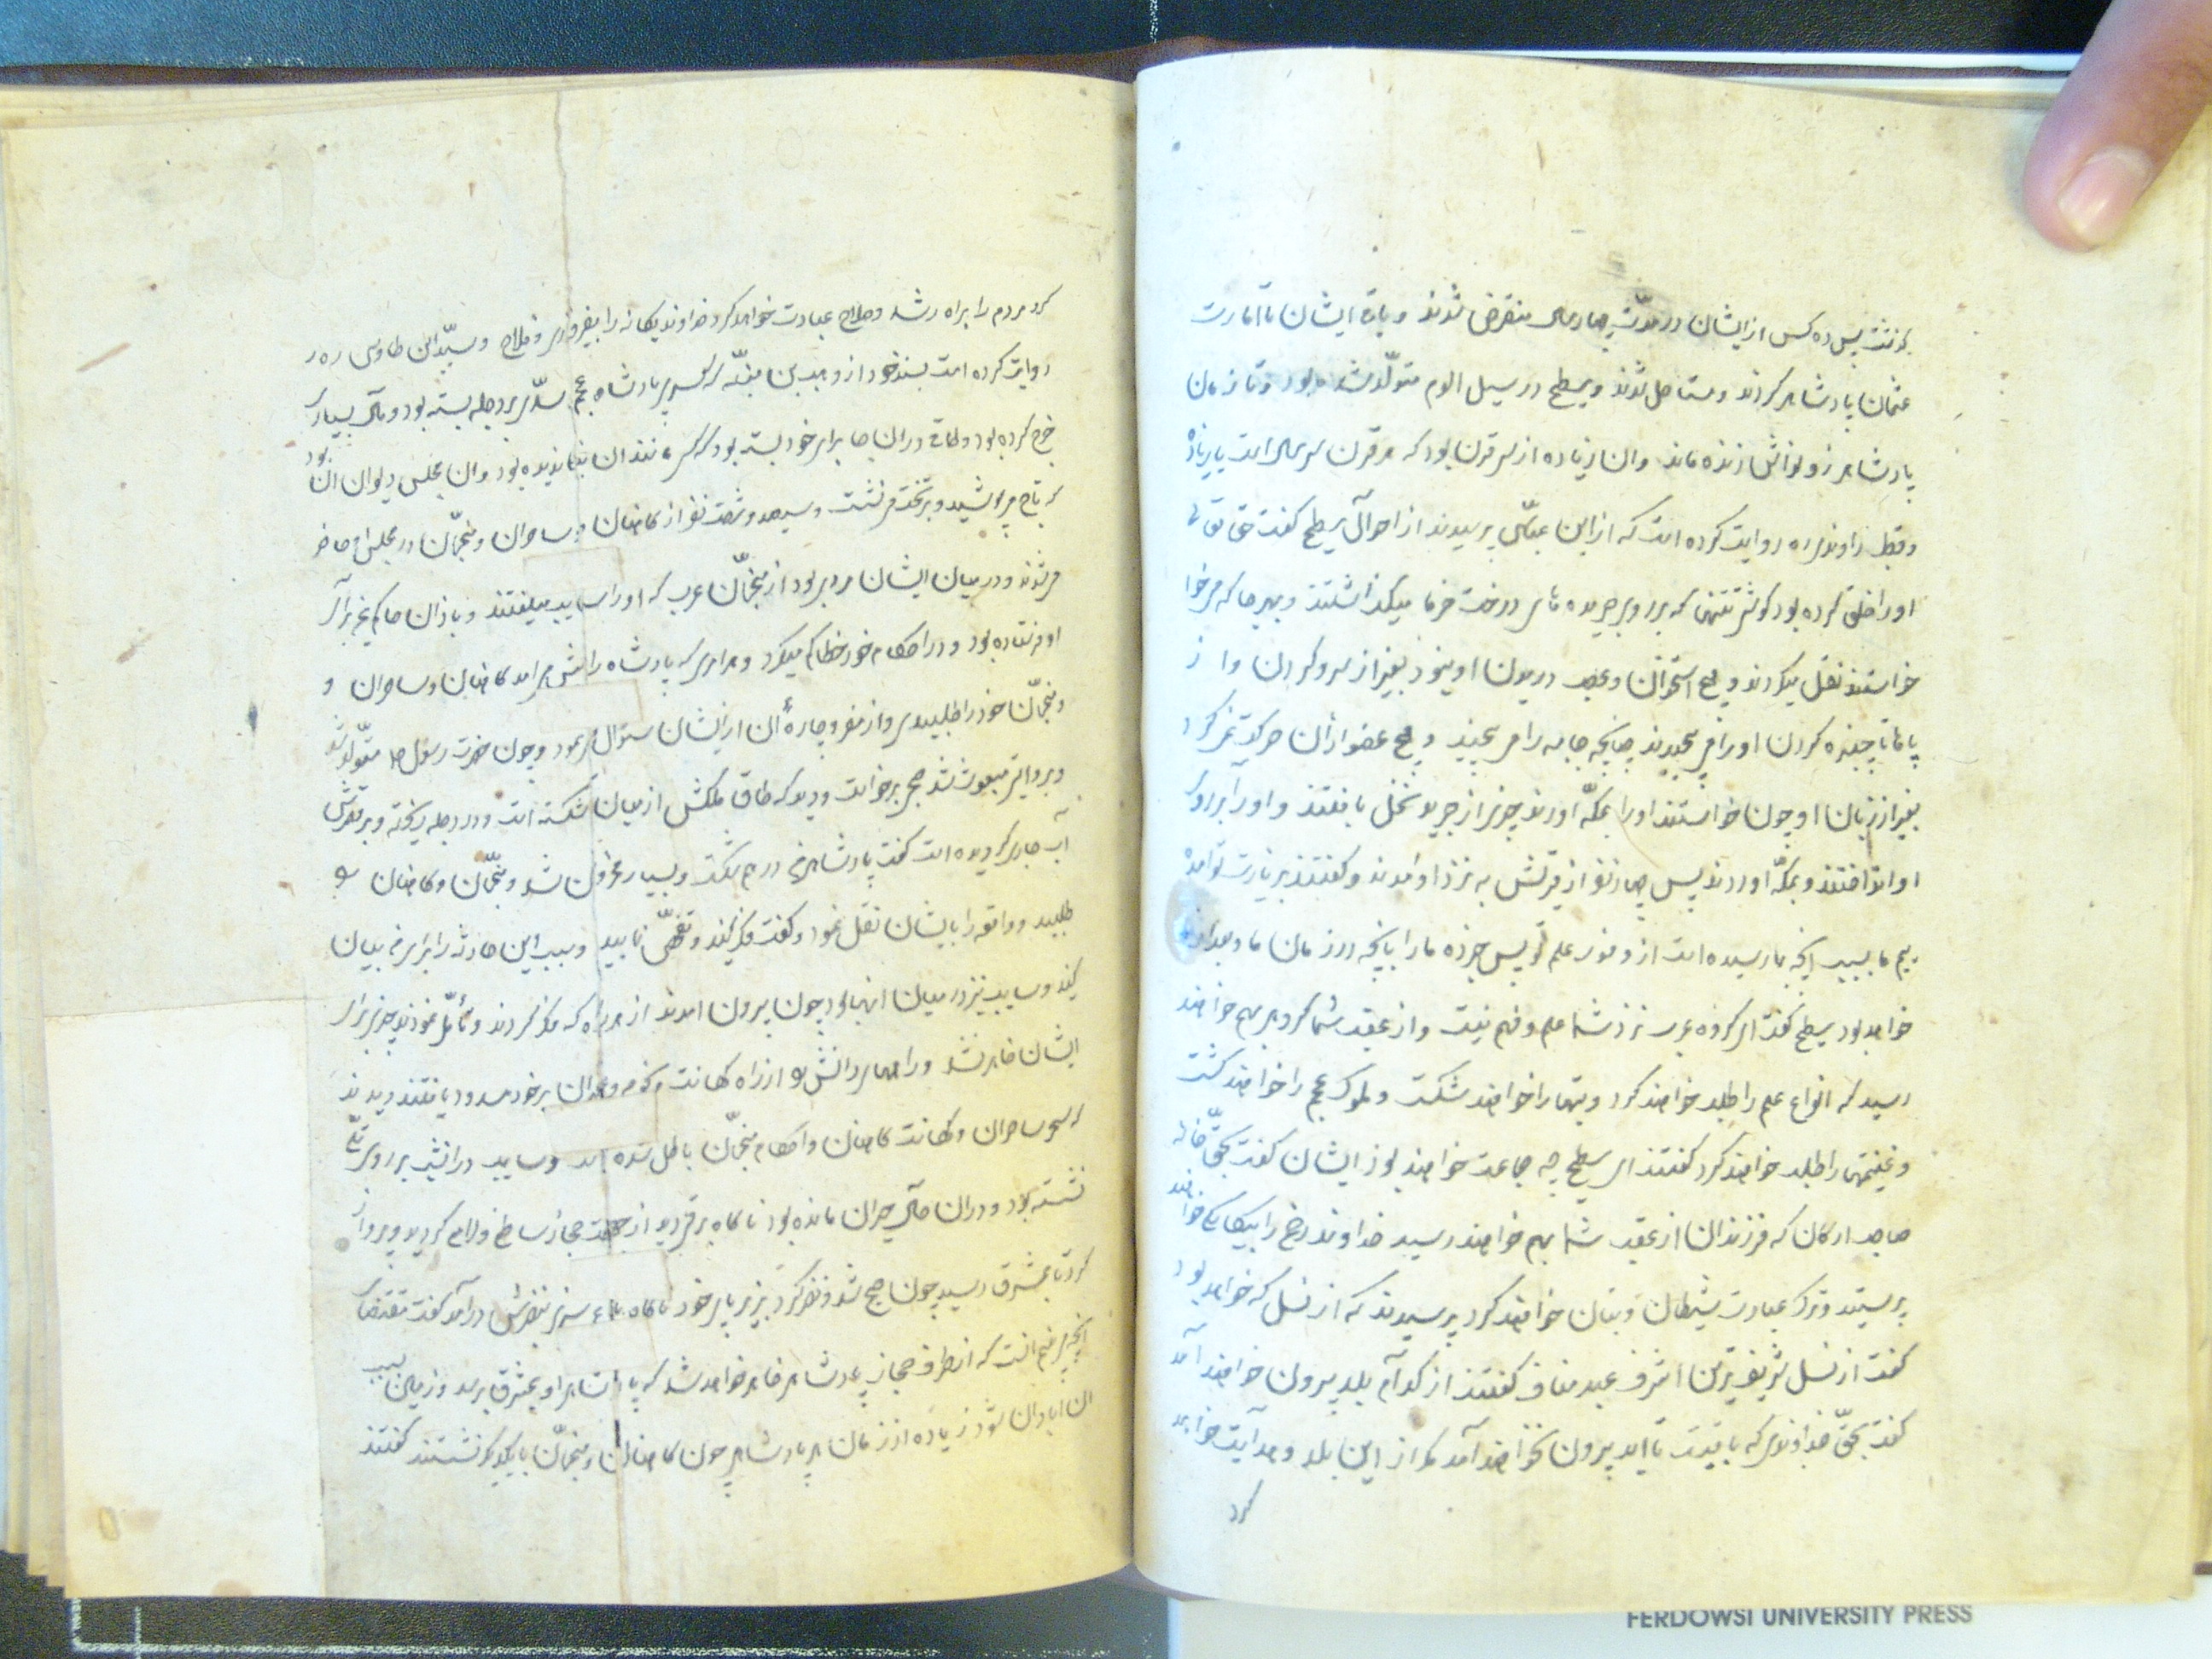 گذشت پس ده کس از ایشان در مدت چهار سال منقرض شدند و باقی ایشان تا امارت
عثمان پادشاهی کردند و مستاصل شدند و سطیح در سیل العرم متولد شده بود و تا زمان
پادشاهی ذو نواس زنده ماند و آن زیاده از سی قرن بود که هر قرن سی سال است یا زیاده
و قطب راوندی ره روایت کرده است که از ابن عباس پرسیدند از احوال سطیح گفت حق تعالی
او را خلق کرده بود گوشتی تنها که بر روی جریده های درخت خرما میگذاشتند و بهر جا که میخوا
خواستند نقل میکردند و هیچ استخوان و عصب در بدن او نبود بغیر از سر و گردن و از
پاها تا چنبره گردن او را می پیچیدند چنانچه جامه را می پیچند و هیچ عضو از آن حرکت نمی کرد
بغیر از زبان او چون خواستند او را بمکه آورند چیزی از جرید نخل بافتند و او را بر روی
او انداختند و بمکه آوردند پس چهار نفر از قریش به نزد او آمدند و گفتند بزیارت تو آمده
ایم ما بسبب آنچه بما رسیده است از وفور علم تو پس خبر ده ما را بآنچه در زمان ما و بعد از ما
خواهد بود سطیح گفت ای گروه عرب نزد شما علم و فهم نیست و از عقب شما گروهی بهم خواهند
رسید که انواع علم را طلب خواهند کرد و بتها را خواهند شکست و ملوک عجم را خواهند کشت
و غنیمتها را طلب خواهند کرد گفتند ای سطیح چه جماعت خواهند بود ایشان گفت بحق خانه
صاحب ارکان که فرزندان از عقب شما بهم خواهند رسید خداوند رحمن را بیگانگی خواهند
پرستید و ترک عبادت شیطان و بتان خواهند کرد پرسیدند که از نسل که خواهد بود
گفت از نسل شریف ترین اشرف عبد مناف گفتند از کدام بلد بیرون خواهند آمد
گفت بحق خداوندی که باقیست تا ابد بیرون نخواهند آمد مگر از این بلد و هدایت خواهد
کرد
کرد مردم را براه رشد و صلاح عبادت خواهد کرد خداوند یگانه را بفیروزی و فلاح و سید ابن طاوس ره
روایت کرده است بسند خود از وهب بن منبه که کسری پادشاه عجم سدی بر دجله بسته بود و مال بسیاری
خرج کرده بود و طاقی در آن جا برای خود بسته بود که کسی مانند آن بنا ندیده بود و آن مجلس دیوان آن بود
که تاج میپوشید و بر تخت می نشست و سیصد و شصت نفر از کاهنان و ساحران و منجمان در مجلس او حاضر
میشدند و در میان ایشان مردی بود از منجمان عرب که او را سایب میگفتند و باذان حاکم یمن برای
او فرستاده بود و در احکام خود خطا کم میکرد و هر امری که پادشاه را پیش می آمد کاهنان و ساحران و
و منجمان خود را طلبیدی و از مفر و چاره آن از ایشان سؤال می نمود و چون حضرت رسول ص متولد شد
و بروایتی مبعوث شد صبح برخواست و دید که طاق ملکش از میان شکسته است و در دجله ریخته و بر قصرش
آب جاری گردیده است گفت پادشاهی من درهم شکست و بسیار محزون شد و منجمان و کاهنان را
طلبید و واقعه را بایشان نقل نمود و گفت فکر کنید و تفحص نمایید و سبب این حادثه را برای من بیان
کنید و سایب نیز در میان آنها بود چون بیرون آمدند از هر راه که فکر کردند و تأمل نمودند چیزی برای
ایشان ظاهر نشد و راههای دانش را از راه کهانت و نجوم و غیر آن بر خود مسدود یافتند دیدند
که سحر ساحران و کهانت کاهنان و احکام منجمان باطل شده است و سایب در آنشب بر روی تلی
نشسته بود و در آن حال حیران مانده بود ناگاه برقی دید از جهت حجاز ساطع و لامع گردید و پرواز
کرد تا بمشرق رسید چون صبح شد و نظر کرد بزیر پای خود ناگاه باغ سبزی بنظرش درآمد گفت مقتضای
آنچه می بینم آنست که از طرف حجاز پادشاهی ظاهر خواهد شد که پادشاهی او بمشرق برسد و زمین بسبب
آن آبادان شود زیاده از زمان هر پادشاهی چون کاهنان و منجمان با یکدیگر نشستند گفتند
FERDOWSI UNIVERSITY PRESS